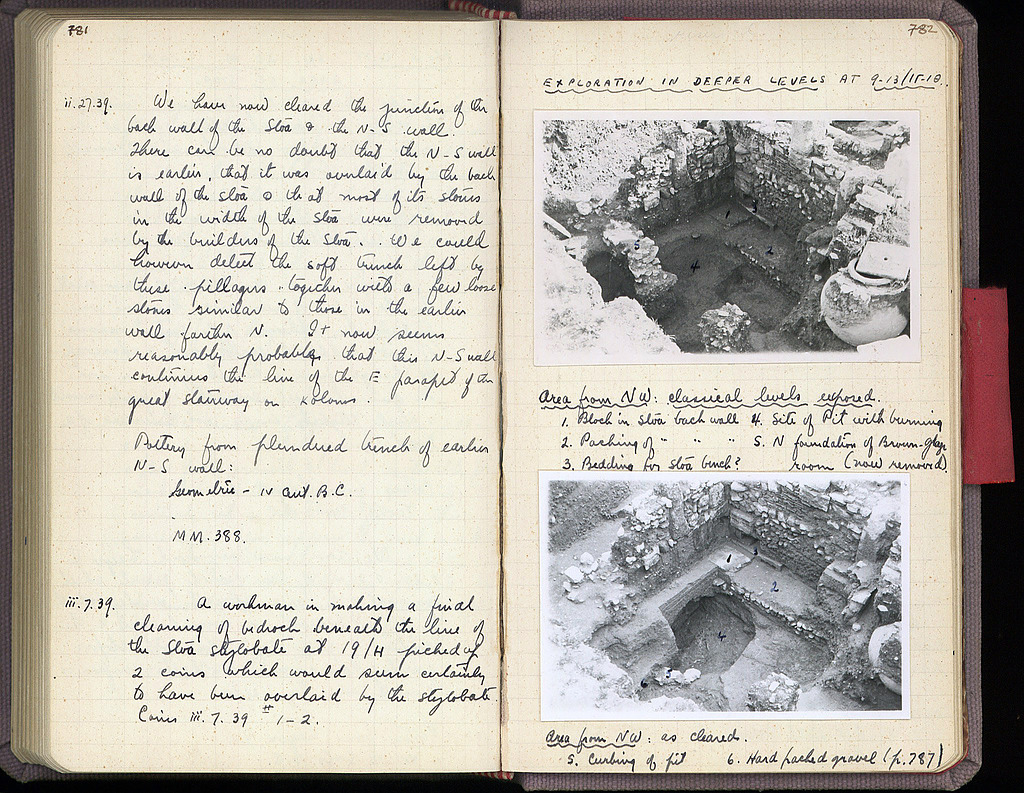 781
ii.27.39. We have now cleared the junction of the
back wall of the Stoa & the N-S wall
There can be no doubt that the N-S wall
is earlier, that it was overlaid by the back
wall of the Stoa & that most of its stones
in the width of the Stoa were removed
by the builders of the Stoa. We could
however detect the soft trench left by
these pillagers together with a few loose
stones similar to those in the earlier
wall farther N. It now seems
reasonably probable that this N-S wall
continues the line of the E parapet of the
great stairway on Kolonos.
Pottery from plundered trench of earlier
N-S wall:
Geometric - IV cent. B.C.
MM. 388.
iii.7.39. A workman in making a final
cleaning of bedrock beneath the line of
the Stoa stylobate at 19/H picked up
2 coins which would seem certainly
to have been overlaid by the stylobate.
Coins iii.7.39 # 1-2.
782
EXPLORATION IN DEEPER LEVELS AT 9-13/15-18.
1
3
2
4
5
Area from NW: classical levels exposed.
1. Block in Stoa back wall 4. Site of Pit with burning
2. Packing of " " " 5. N foundation of Brown-glaze
3. Bedding for Stoa bench? room (now removed).
1
3
2
4
5
6
Area from NW: as cleared.
5. Curbing of pit 6. Hard packed gravel (p.787)